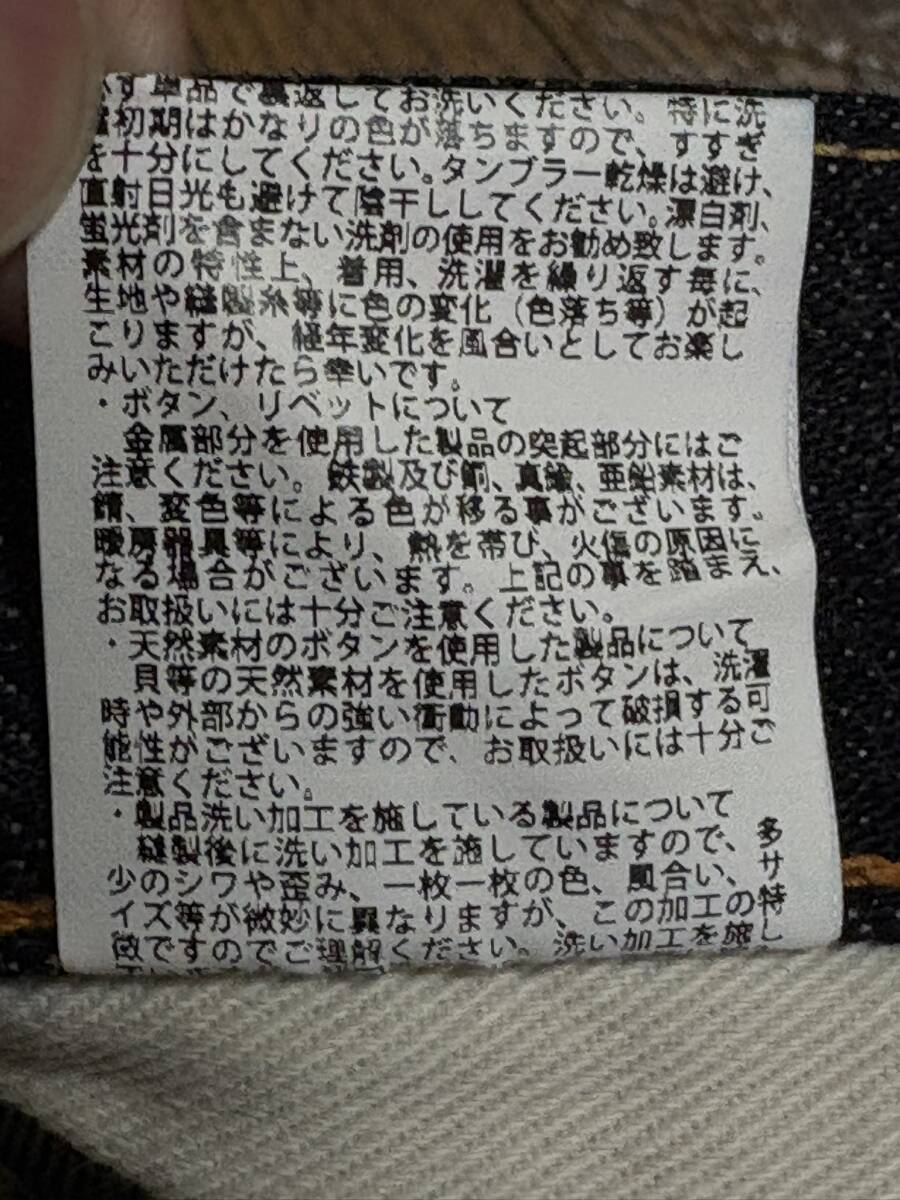 ず単品で裏返してお洗いください。特に洗
濯初期はかなりの色が落ちますので、すすぎ
を十分にしてください。タンブラー乾燥は避け、
直射日光も避けて陰干ししてください。漂白剤、
蛍光剤を含まない洗剤の使用をお勧め致します。
素材の特性上、着用、洗濯を繰り返す毎に、
生地や縫製糸等に色の変化（色落ち等）が起
こりますが、経年変化を風合いとしてお楽し
みいただけたら幸いです。
・ボタン、リベットについて
金属部分を使用した製品の突起部分にはご
注意ください。鉄製及び銅、真鍮、亜鉛素材は、
錆、変色等による色が移る事がございます。
暖房器具等により、熱を帯び、火傷の原因に
なる場合がございます。上記の事を踏まえ、
お取扱いには十分ご注意ください。
・天然素材のボタンを使用した製品について
貝等の天然素材を使用したボタンは、洗濯
時や外部からの強い衝動によって破損する可
能性がございますので、お取扱いには十分ご
注意ください。
・製品洗い加工を施している製品について
縫製後に洗い加工を施していますので、多
少のシワや歪み、一枚一枚の色、風合い、サ
イズ等が微妙に異なりますが、この加工の特
徴ですのでご理解ください。洗い加工を施し